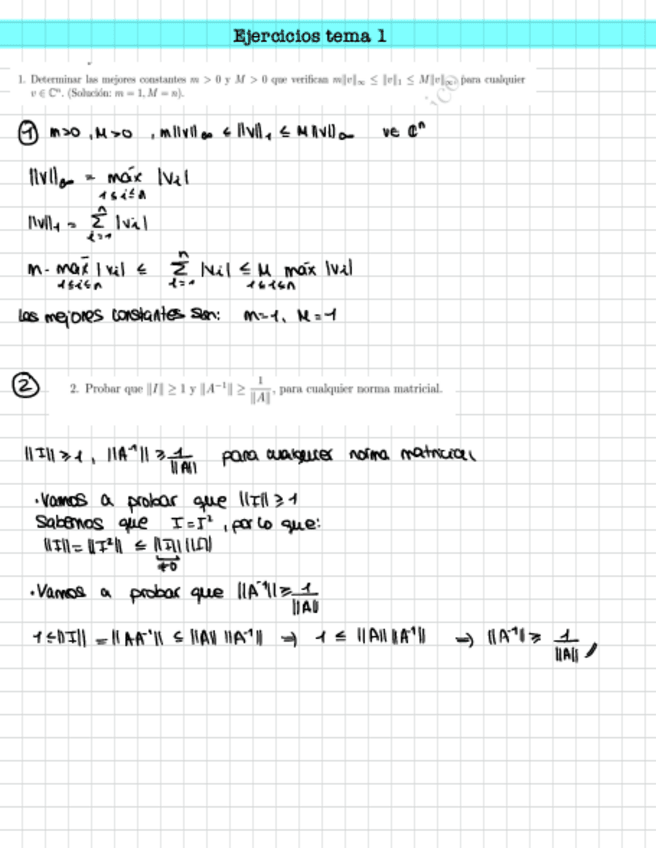 Ejercicios tema 1
1. Determinar las mejores constantes m > 0 y M > 0 que verifican m‖v‖∞ ≤ ‖v‖₁ ≤ M‖v‖∞, para cualquier
v ∈ ℂⁿ. (Solución: m = 1, M = n).
① m>0, M>0 , m‖v‖∞ ≤ ‖v‖₁ ≤ M‖v‖∞ v∈ ℂⁿ
‖v‖∞ = máx |vi|
1≤i≤n
‖v‖₁ = Σ |vi|
n
i=1
m· máx |vi| ≤ Σ |vi| ≤ M máx |vi|
1≤i≤n n i=1 1≤i≤n
Las mejores constantes son: m=1, M=1
②
2. Probar que ‖I‖ ≥ 1 y ‖A⁻¹‖ ≥ 1/‖A‖, para cualquier norma matricial.
‖I‖ ≥ 1, ‖A⁻¹‖ ≥ 1/‖A‖ para cualquier norma matricial
·Vamos a probar que ‖I‖ ≥ 1
Sabemos que I=I², por lo que:
‖I‖ = ‖I²‖ ≤ ‖I‖ ‖I‖
≠0
·Vamos a probar que ‖A⁻¹‖ ≥ 1/‖A‖
1≤‖I‖ = ‖AA⁻¹‖ ≤ ‖A‖ ‖A⁻¹‖ ⇒ 1 ≤ ‖A‖ ‖A⁻¹‖ ⇒ ‖A⁻¹‖ ≥ 1/‖A‖